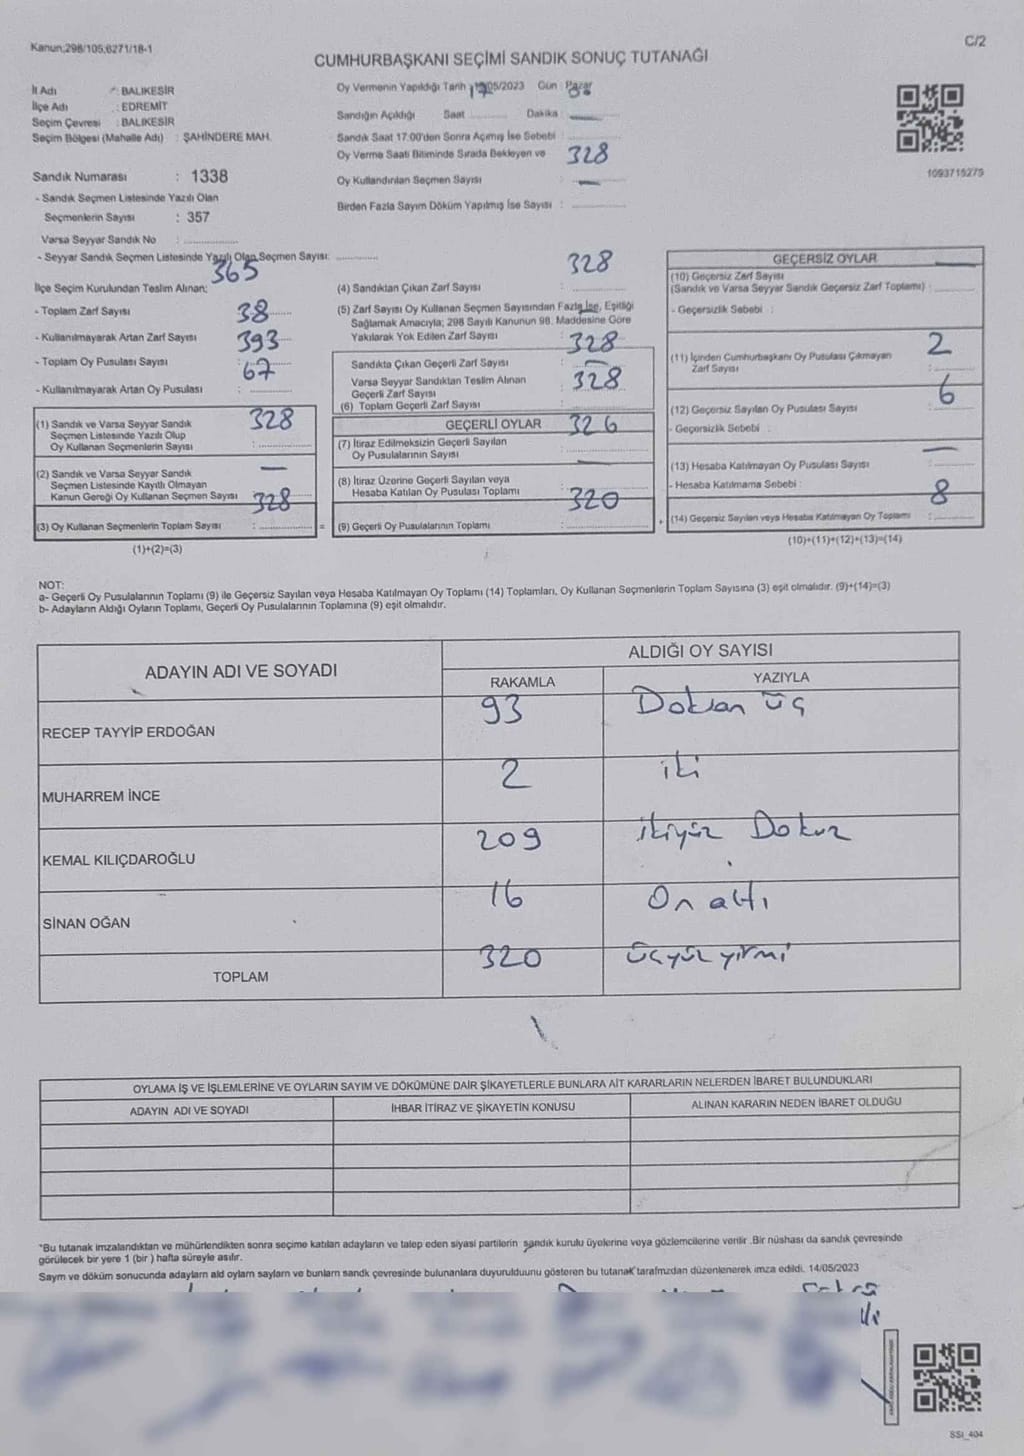 Kanun;298/105;6271/18-1
C/2
CUMHURBAŞKANI SEÇİMİ SANDIK SONUÇ TUTANAĞI
İl Adı : BALIKESİR
İlçe Adı : EDREMİT
Seçim Çevresi : BALIKESİR
Seçim Bölgesi (Mahalle Adı) : ŞAHİNDERE MAH.
Sandık Numarası : 1338
- Sandık Seçmen Listesinde Yazılı Olan
Seçmenlerin Sayısı : 357
Varsa Seyyar Sandık No : ..............
- Seyyar Sandık Seçmen Listesinde Yazılı Olan Seçmen Sayısı: ..............
Oy Vermenin Yapıldığı Tarih 05/2023 Gün : Pazar
Sandığın Açıldığı Saat .......... Dakika : —
Sandık Saat 17:00'den Sonra Açımış İse Sebebi : ..............
Oy Verme Saati Bitiminde Sırada Bekleyen ve 328
Oy Kullandırılan Seçmen Sayısı : —
Birden Fazla Sayım Döküm Yapılmış İse Sayısı : ..............
1093715279
İlçe Seçim Kurulundan Teslim Alınan; 365
- Toplam Zarf Sayısı 38
- Kullanılmayarak Artan Zarf Sayısı 393
- Toplam Oy Pusulası Sayısı 67
- Kullanılmayarak Artan Oy Pusulası : ..............
(1) Sandık ve Varsa Seyyar Sandık 328
Seçmen Listesinde Yazılı Olup
Oy Kullanan Seçmenlerin Sayısı : ..............
(2) Sandık ve Varsa Seyyar Sandık —
Seçmen Listesinde Kayıtlı Olmayan
Kanun Gereği Oy Kullanan Seçmen Sayısı 328
(3) Oy Kullanan Seçmenlerin Toplam Sayısı : .............. =
(1)+(2)=(3)
328
(4) Sandıktan Çıkan Zarf Sayısı : ..............
(5) Zarf Sayısı Oy Kullanan Seçmen Sayısından Fazla İse, Eşitliği
Sağlamak Amacıyla; 298 Sayılı Kanunun 98. Maddesine Göre
Yakılarak Yok Edilen Zarf Sayısı 328
Sandıkta Çıkan Geçerli Zarf Sayısı : —
Varsa Seyyar Sandıktan Teslim Alınan 328
Geçerli Zarf Sayısı
(6) Toplam Geçerli Zarf Sayısı : ..............
GEÇERLİ OYLAR 326
(7) İtiraz Edilmeksizin Geçerli Sayılan
Oy Pusulalarının Sayısı : ..............
(8) İtiraz Üzerine Geçerli Sayılan veya
Hesaba Katılan Oy Pusulası Toplamı 320
(9) Geçerli Oy Pusulalarının Toplamı : ..............
GEÇERSİZ OYLAR
(10) Geçersiz Zarf Sayısı —
(Sandık ve Varsa Seyyar Sandık Geçersiz Zarf Toplamı) : ..........
- Geçersizlik Sebebi :
(11) İçinden Cumhurbaşkanı Oy Pusulası Çıkmayan 2
Zarf Sayısı : ..........
(12) Geçersiz Sayılan Oy Pusulası Sayısı 6
- Geçersizlik Sebebi :
(13) Hesaba Katılmayan Oy Pusulası Sayısı —
- Hesaba Katılmama Sebebi : 8
(14) Geçersiz Sayılan veya Hesaba Katılmayan Oy Toplamı : ..........
(10)+(11)+(12)+(13)=(14)
NOT:
a- Geçerli Oy Pusulalarının Toplamı (9) ile Geçersiz Sayılan veya Hesaba Katılmayan Oy Toplamı (14) Toplamları, Oy Kullanan Seçmenlerin Toplam Sayısına (3) eşit olmalıdır. (9)+(14)=(3)
b- Adayların Aldığı Oyların Toplamı, Geçerli Oy Pusulalarının Toplamına (9) eşit olmalıdır.
ADAYIN ADI VE SOYADI
ALDIĞI OY SAYISI
RAKAMLA
YAZIYLA
RECEP TAYYİP ERDOĞAN 93 Doksan üç
MUHARREM İNCE 2 iki
KEMAL KILIÇDAROĞLU 209 ikiyüz Dokuz
SİNAN OĞAN 16 On altı
TOPLAM 320 üçyüz yirmi
OYLAMA İŞ VE İŞLEMLERİNE VE OYLARIN SAYIM VE DÖKÜMÜNE DAİR ŞİKAYETLERLE BUNLARA AİT KARARLARIN NELERDEN İBARET BULUNDUKLARI
ADAYIN ADI VE SOYADI
İHBAR İTİRAZ VE ŞİKAYETİN KONUSU
ALINAN KARARIN NEDEN İBARET OLDUĞU
*Bu tutanak imzalandıktan ve mühürlendikten sonra seçime katılan adayların ve talep eden siyasi partilerin sandık kurulu üyelerine veya gözlemcilerine verilir .Bir nüshası da sandık çevresinde
görülecek bir yere 1 (bir ) hafta süreyle asılır.
Sayım ve döküm sonucunda adayların ald oyların sayların ve bunların sandk çevresinde bulunanlara duyurulduunu gösteren bu tutanak tarafmzdan düzenlenerek imza edildi. 14/05/2023
SSI_404